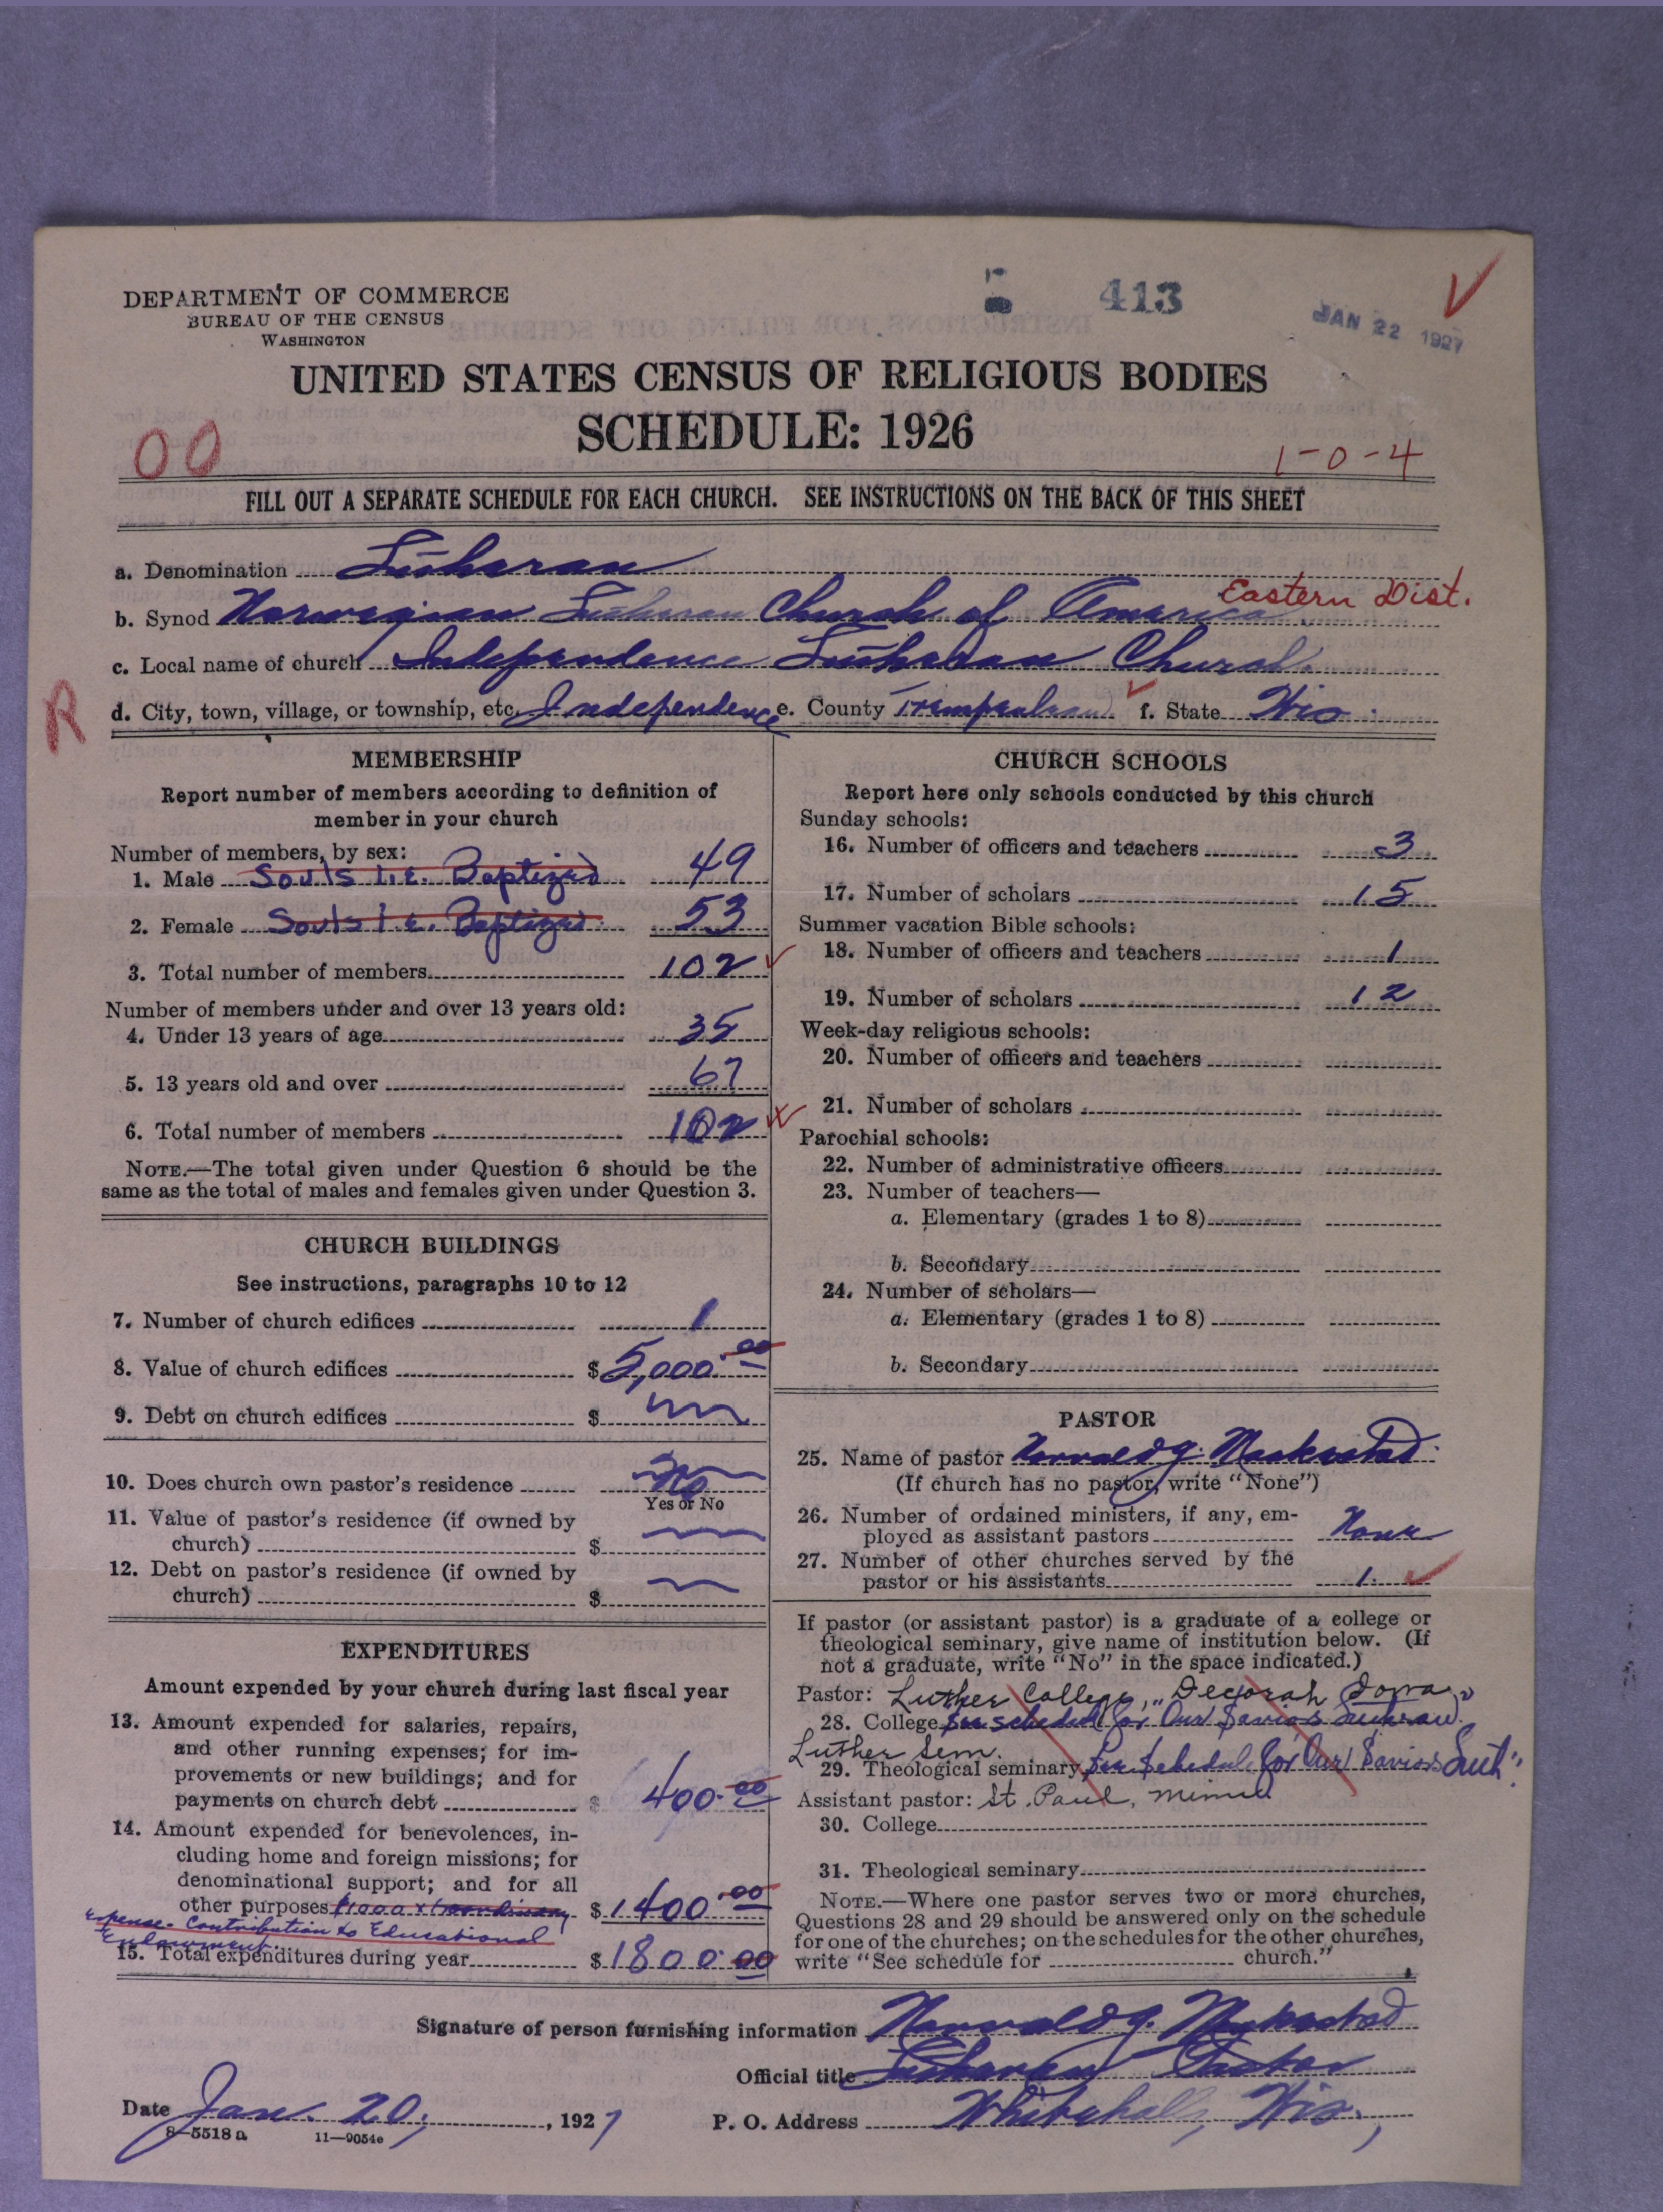 DEPARTMENT OF COMMERCE
BUREAU OF THE CENSUS
WASHINGTON
413
JAN 22 1927
UNITED STATES CENSUS OF RELIGIOUS BODIES
SCHEDULE: 1926
00
1-0-4
FILL OUT A SEPARATE SCHEDULE FOR EACH CHURCH. SEE INSTRUCTIONS ON THE BACK OF THIS SHEET
a. Denomination Lutheran
Eastern Dist.
b. Synod Norwegian Lutheran Church of America
c. Local name of church Independence Lutheran Church
R
d. City, town, village, or township, etc. Independence e. County Trempealeau f. State Wis.
MEMBERSHIP
Report number of members according to definition of
member in your church
Number of members, by sex:
1. Male Souls i.e. Baptized 49
2. Female Souls i.e. Baptized 53
3. Total number of members 102
Number of members under and over 13 years old:
4. Under 13 years of age 35
5. 13 years old and over 67
6. Total number of members 102
NOTE.—The total given under Question 6 should be the
same as the total of males and females given under Question 3.
CHURCH BUILDINGS
See instructions, paragraphs 10 to 12
7. Number of church edifices 1
8. Value of church edifices $5,000.00
9. Debt on church edifices $
10. Does church own pastor's residence No
Yes or No
11. Value of pastor's residence (if owned by
church) $
12. Debt on pastor's residence (if owned by
church) $
EXPENDITURES
Amount expended by your church during last fiscal year
13. Amount expended for salaries, repairs,
and other running expenses; for im-
provements or new buildings; and for
payments on church debt $ 400.00
14. Amount expended for benevolences, in-
cluding home and foreign missions; for
denominational support; and for all
other purposes $1000 xtraordinary $1400.00
expense. Contribution to Educational
Endowment.
15. Total expenditures during year $1800.00
CHURCH SCHOOLS
Report here only schools conducted by this church
Sunday schools:
16. Number of officers and teachers 3
17. Number of scholars 15
Summer vacation Bible schools:
18. Number of officers and teachers 1
19. Number of scholars 12
Week-day religious schools:
20. Number of officers and teachers
21. Number of scholars
Parochial schools:
22. Number of administrative officers
23. Number of teachers—
a. Elementary (grades 1 to 8)
b. Secondary
24. Number of scholars—
a. Elementary (grades 1 to 8)
b. Secondary
PASTOR
25. Name of pastor
(If church has no pastor, write "None")
26. Number of ordained ministers, if any, em-
ployed as assistant pastors None
27. Number of other churches served by the
pastor or his assistants 1.
If pastor (or assistant pastor) is a graduate of a college or
theological seminary, give name of institution below. (If
not a graduate, write "No" in the space indicated.)
Pastor: Luther College, Decorah Iowa
28. College See schedule for Our Saviors Lutheran
Luther Sem.
29. Theological seminary See Schedule for Our Saviors Luth.
Assistant pastor: St. Paul, Minn
30. College
31. Theological seminary
NOTE.—Where one pastor serves two or more churches,
Questions 28 and 29 should be answered only on the schedule
for one of the churches; on the schedules for the other churches,
write "See schedule for church."
Signature of person furnishing information
Official title Lutheran Pastor
Date Jan. 20, 1927
P. O. Address Whitehall, Wis.
8—5518 a 11—9054e